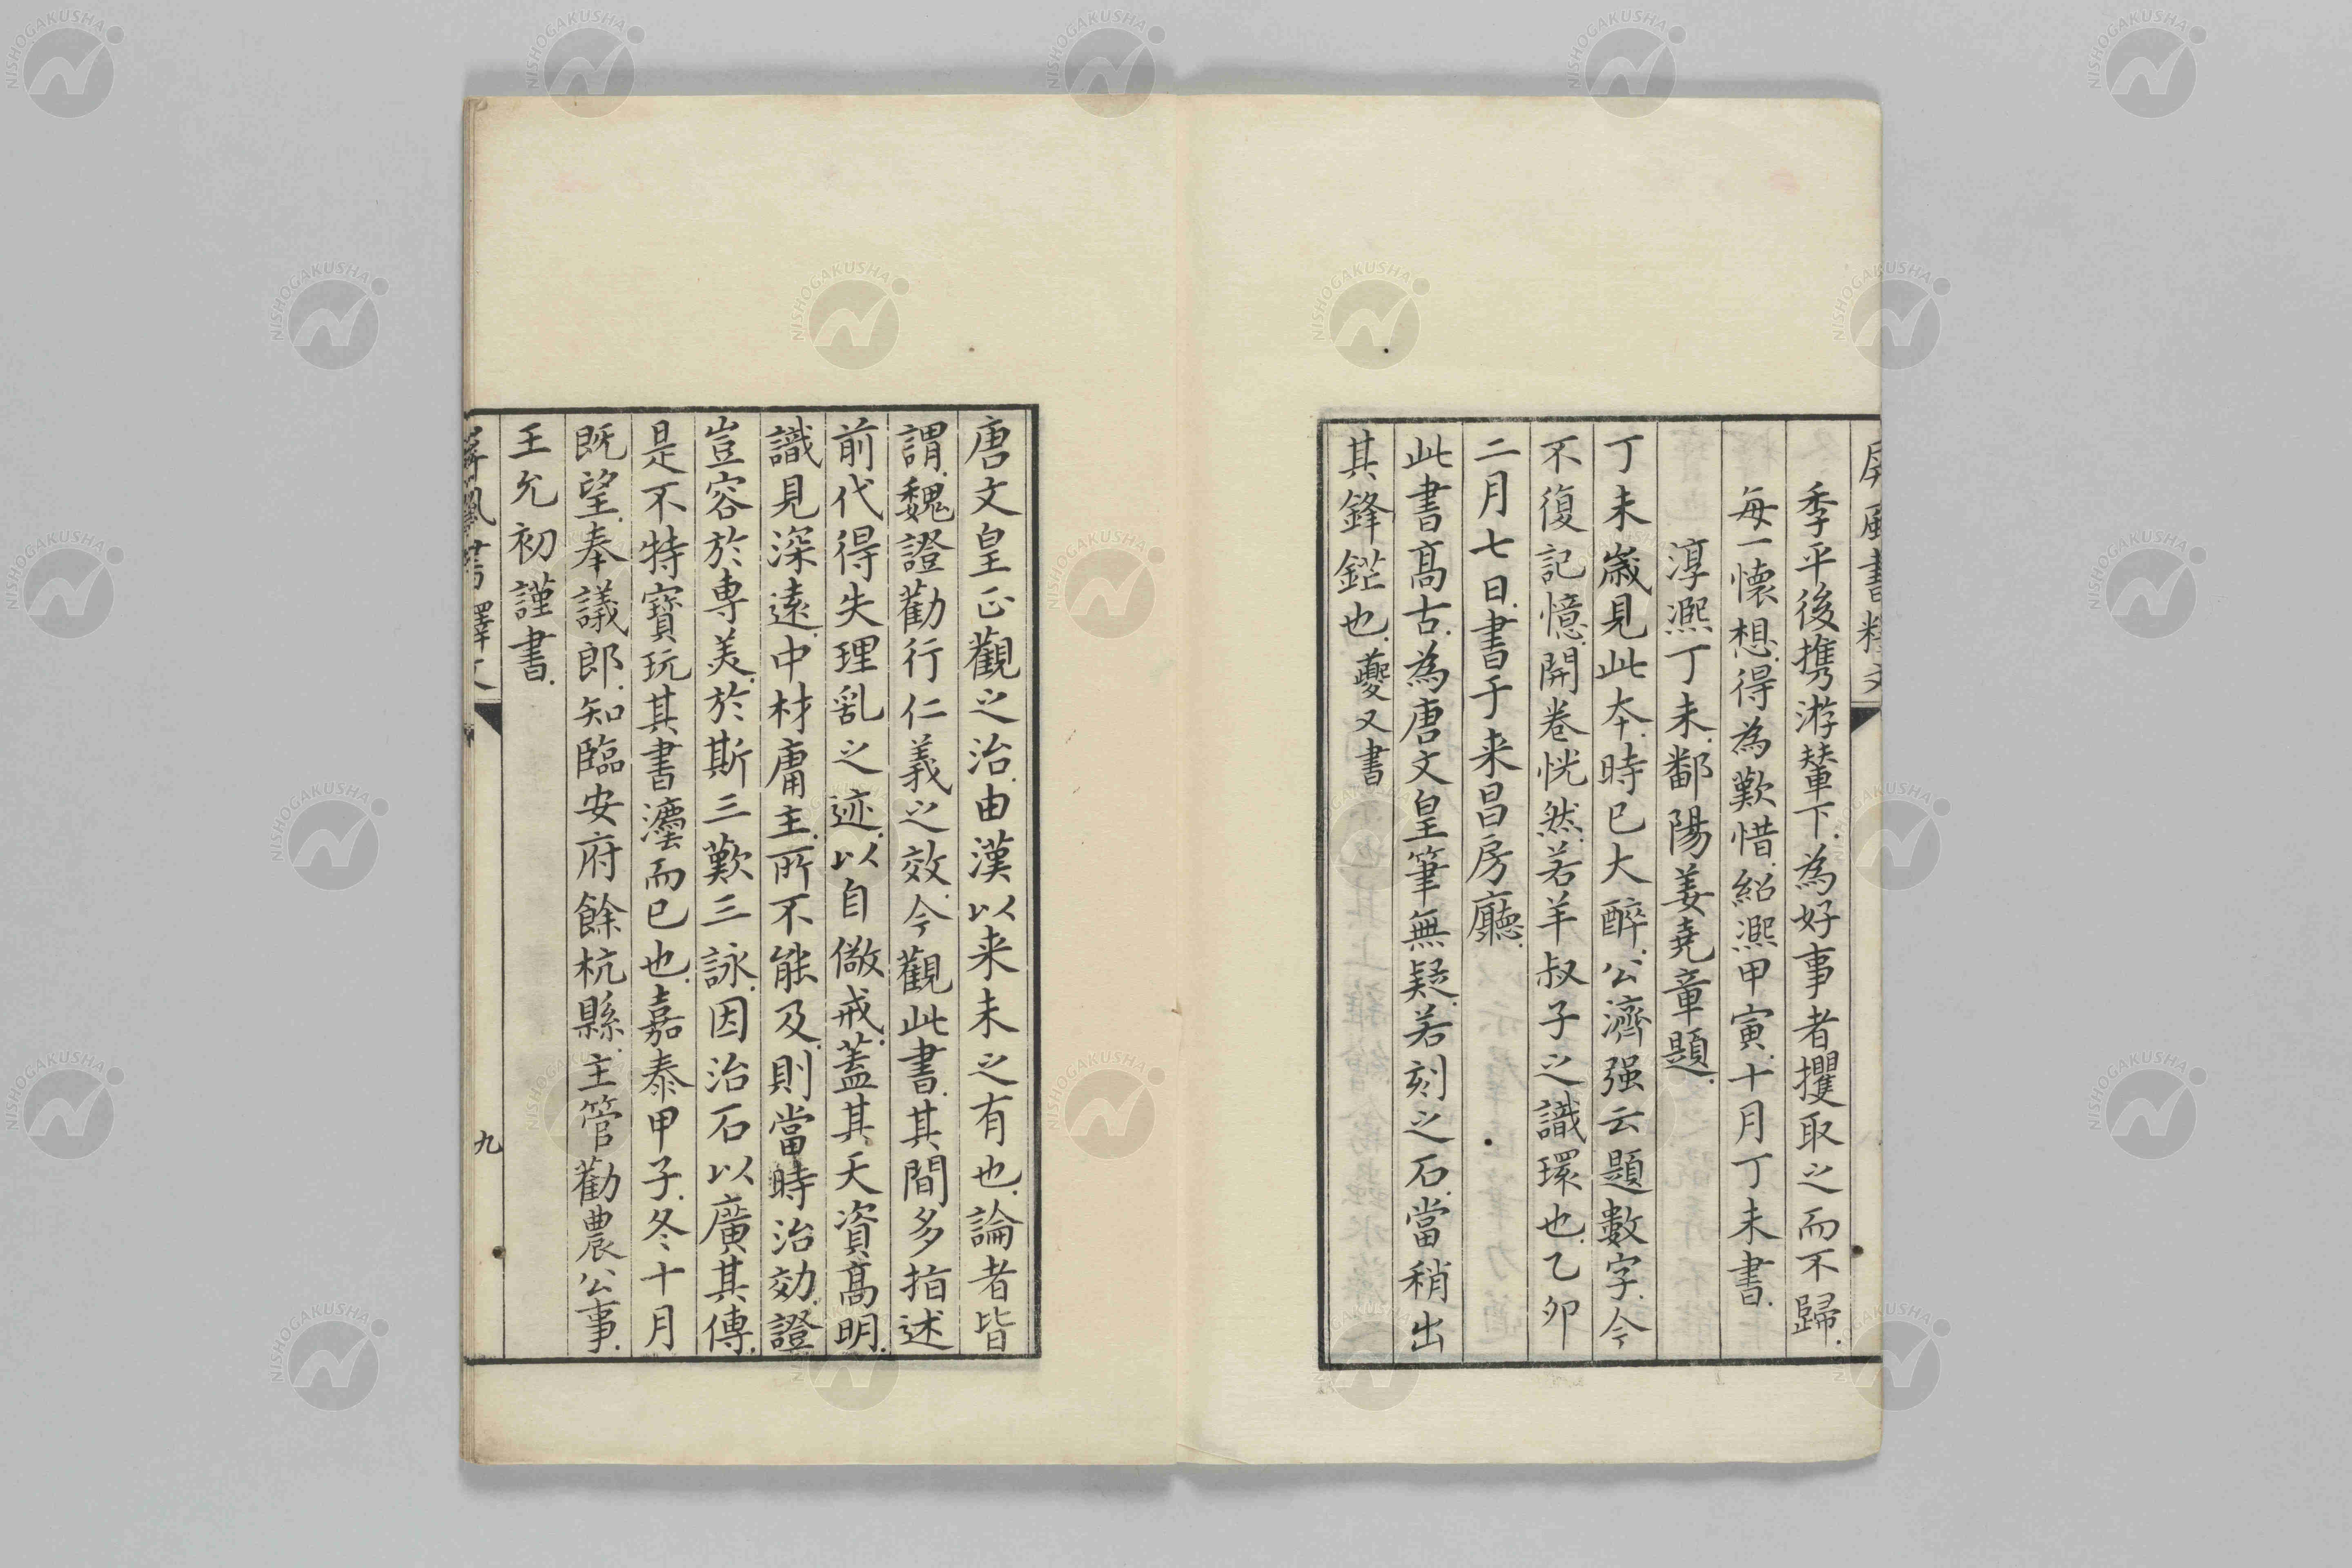 屏風書釋文
季平後攜游輦下.為好事者攫取之而不歸.
每一懷想.得為歎惜.紹熙甲寅.十月丁未書.
淳熙丁未.鄱陽姜堯章題.
丁未歲見此本.時已大醉.公濟强云題數字.今
不復記憶.開卷恍然.若羊叔子之識環也.乙卯
二月七日.書于来昌房廳.
此書髙古.為唐文皇筆無疑.若刻之石.當稍出
其鋒鋩也.夔又書
唐文皇正觀之治.由漢以来未之有也.論者皆
謂.魏證勸行仁義之效.今觀此書.其間多指述
前代得失理亂之迹.以自儆戒.蓋其天資髙明.
識見深遠.中材庸主.所不能及.則當時治効.證
豈容於專美.於斯三歎三詠.因治石以廣其傳.
是不特寶玩其書灋而已也.嘉泰甲子.冬十月
既望.奉議郎.知臨安府餘杭縣.主管勸農公事.
王允初謹書.
屏風書釋文
九
NISHOGAKUSHA